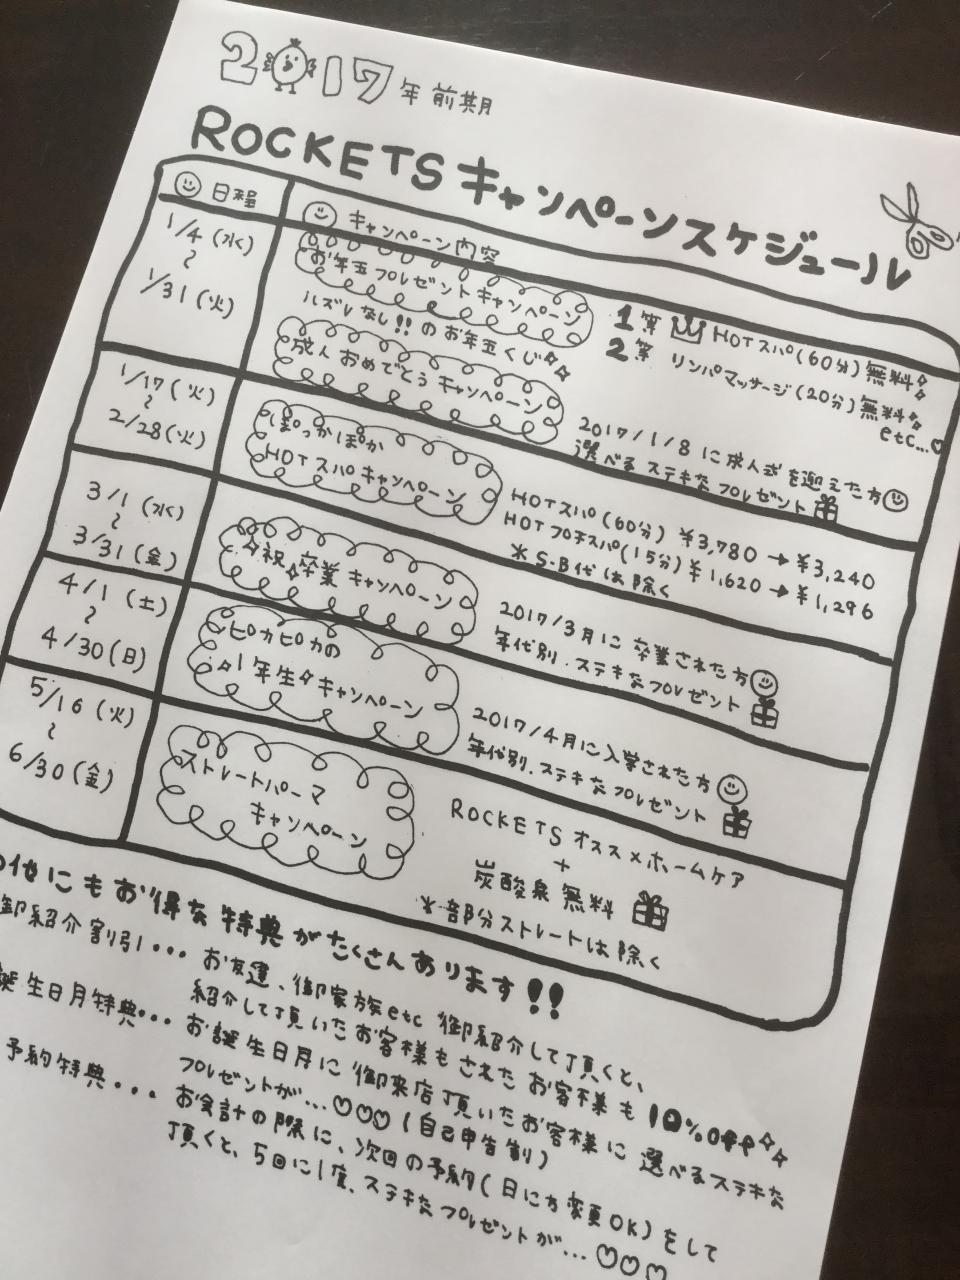 2017年 前期
ROCKETS キャンペーンスケジュール
日程
キャンペーン内容
1/4(水)
〜
1/31(火)
お年玉プレゼントキャンペーン
ハズレなし!!のお年玉くじ
1等 HOTスパ(60分)無料
2等 リンパマッサージ(20分)無料
etc...♡
成人おめでとうキャンペーン
2017/1/8に成人式を迎えた方
選べるステキなプレゼント
1/17(火)
〜
2/28(火)
ぽっかぽか
HOTスパキャンペーン
HOTスパ(60分) ¥3,780→¥3,240
HOTプチスパ(15分)¥1,620→¥1,296
*S・B代は除く
3/1(水)
〜
3/31(金)
祝 卒業キャンペーン
2017/3月に卒業された方
年代別.ステキなプレゼント
4/1(土)
〜
4/30(日)
ピカピカの
1年生キャンペーン
2017/4月に入学された方
年代別.ステキなプレゼント
5/16(火)
〜
6/30(金)
ストレートパーマ
キャンペーン
ROCKETSオススメホームケア
+
炭酸泉無料
*部分ストレートは除く
の他にもお得な特典がたくさんあります!!
御紹介割引・・・お友達、御家族etc 御紹介して頂くと、
紹介して頂いたお客様もされたお客様も10%OFF
誕生日月特典・・・お誕生日月に御来店頂いたお客様に選べるステキな
プレゼントが...♡♡♡(自己申告制)
予約特典・・・お会計の際に、次回の予約(日にち変更OK)をして
頂くと、5回に1度、ステキなプレゼントが...♡♡♡